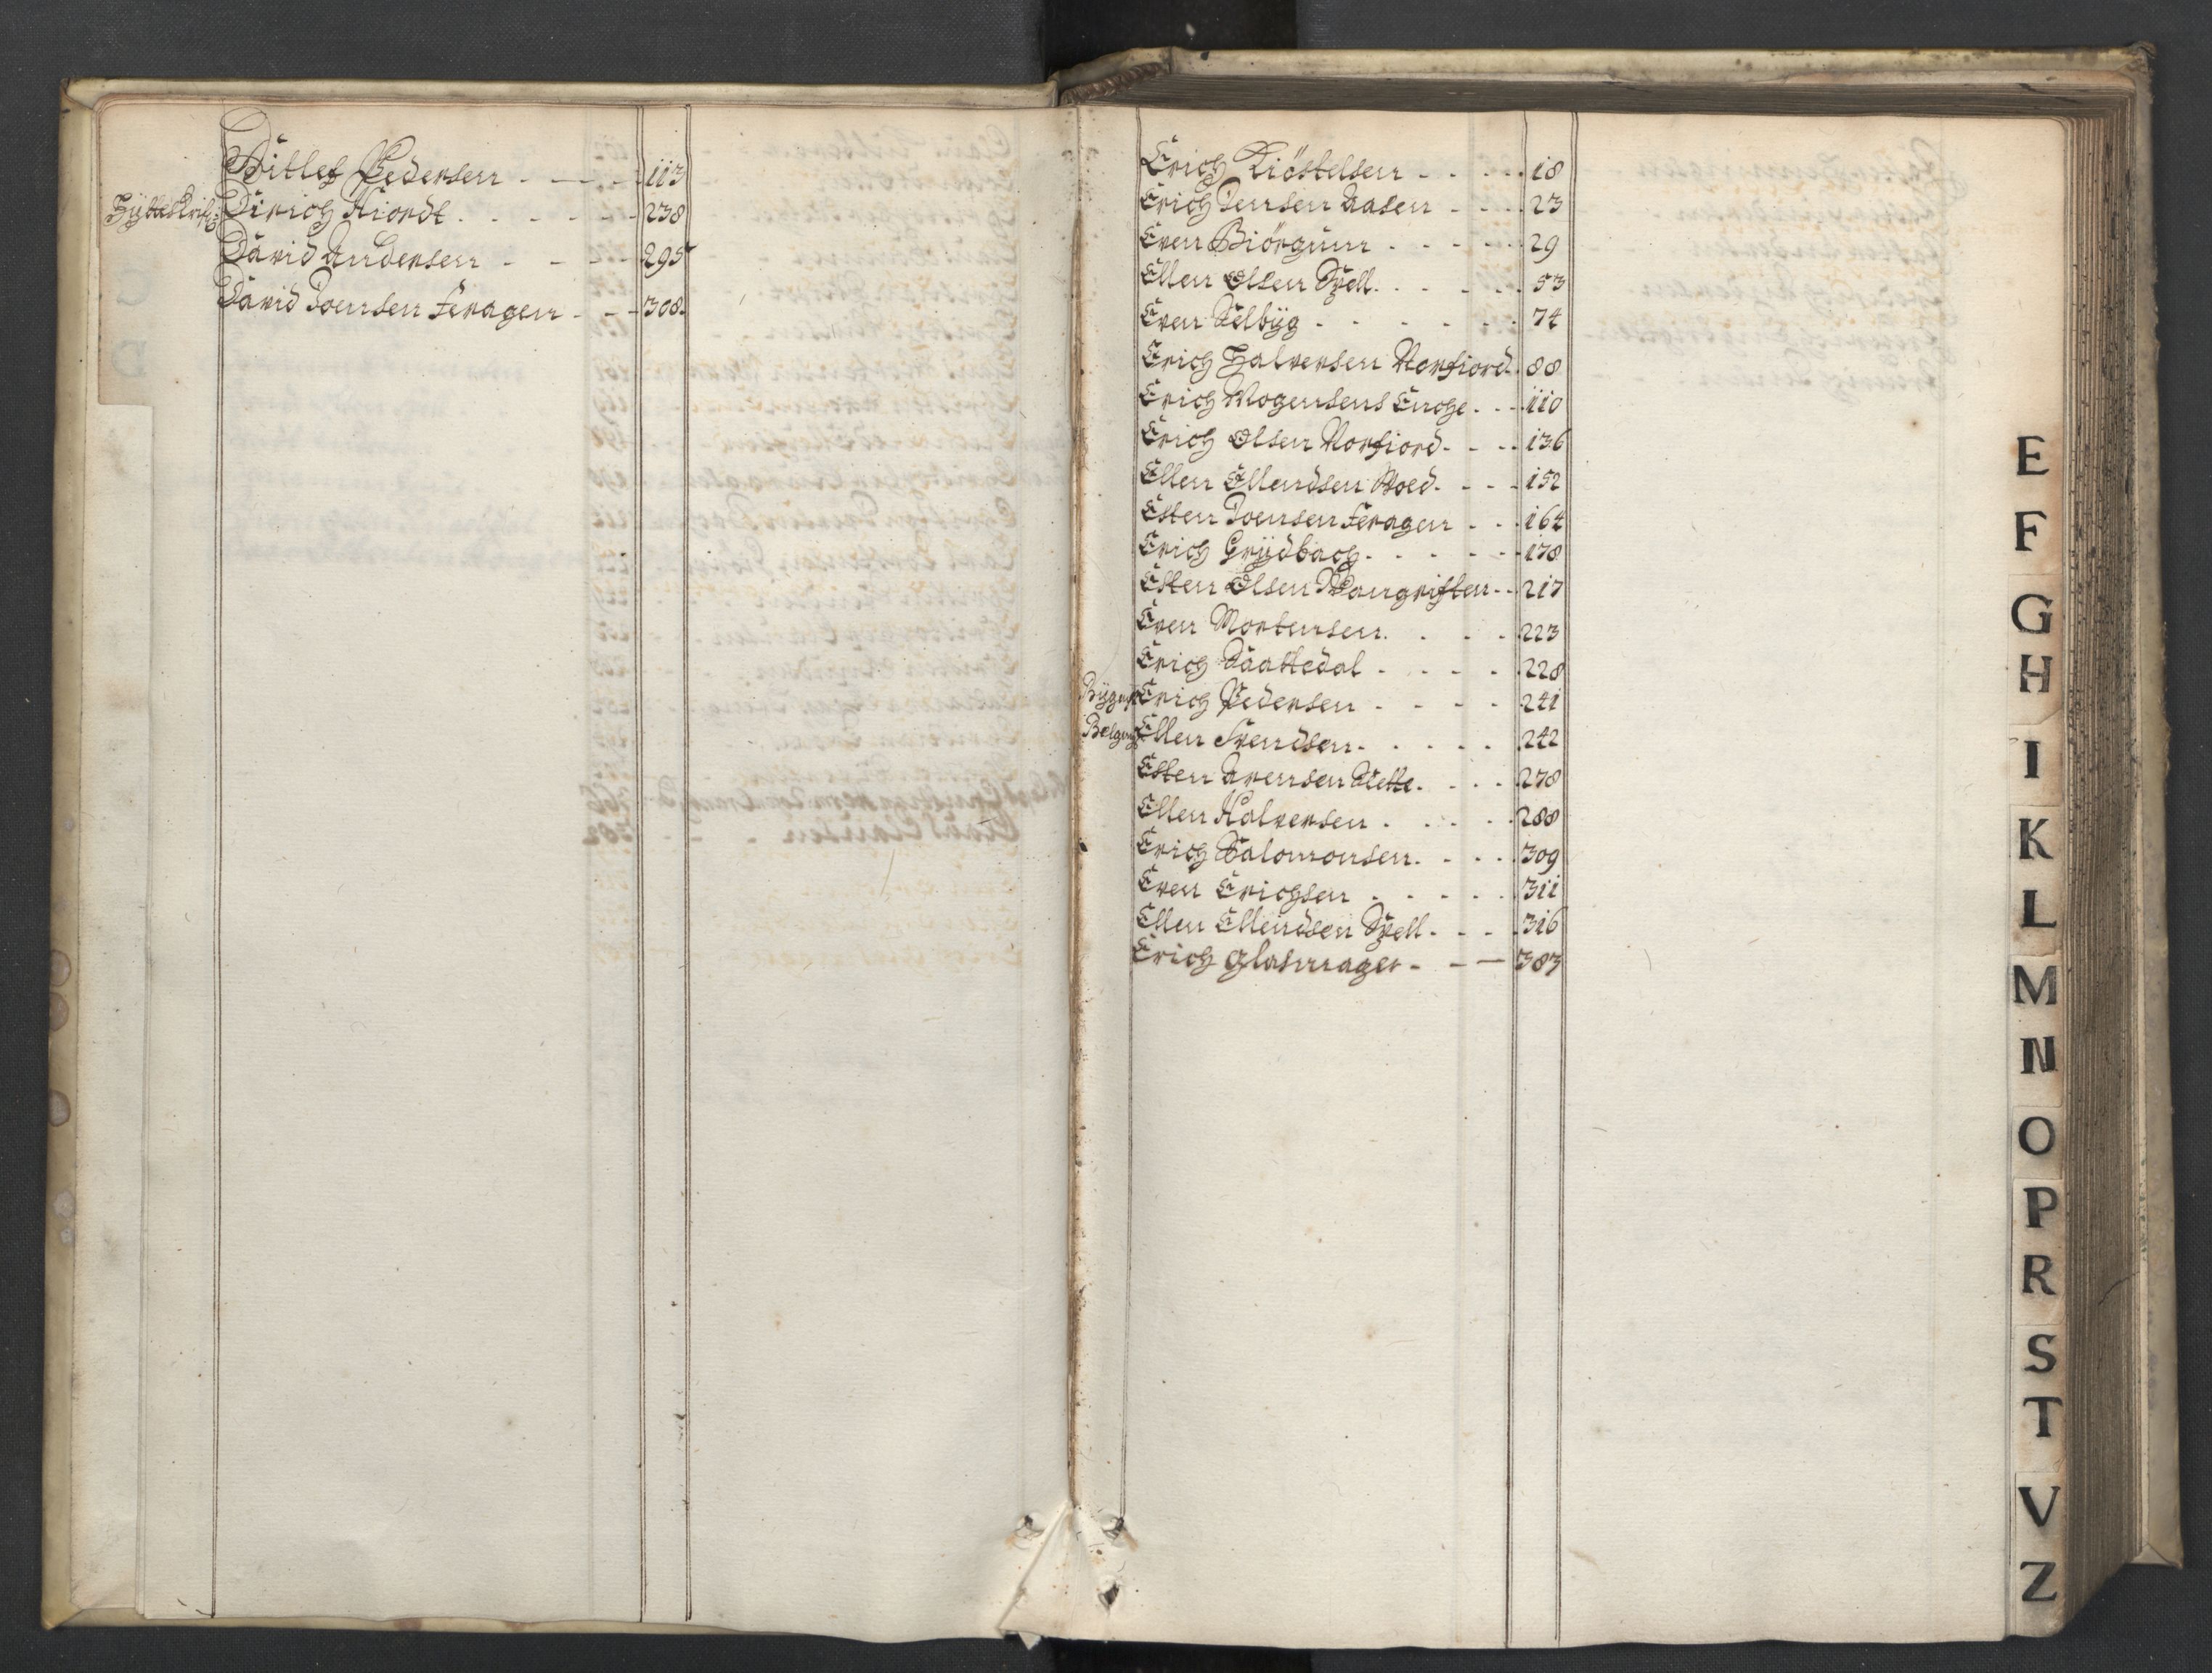 Ditlef Pedersen - - - - 113
Hytteskrif: Dirich Hiordt - - - - - 238
David Andersen - - - - 295
David Joensen Feragen - - - 308.
Erich Kiöstelsen - - - - 18
Erich Jensen Aasen - - - - 23
Even Biörgum - - - - - 29
Ellen Olsen Spell - - - - - 53
Even Selbyg - - - - - - 74
Erich Halversen Norfiord - 88
Erich Mogensens Enche - - - 110
Erich Olsen Norfiord - - - - 136
Ellen Ellendsen Moed - - - - 152
Esten Joensen Feragen - - - 164
Erich Grydbach - - - - - - 178
Esten Olsen Wangriften - - 217
Even Mortensen - - - - 223
Erich Saattedal - - - - - 228
Bygm Erich Pedersen - - - - 241
Belgm Ellen Svendsen - - - - - 242
Esten Arensen Slette - - - - 278
Ellen Halversen - - - - - 288
Erich Salomonsen - - - - 309
Even Erichsen - - - - - 311
Ellen Ellendsen Spell - - - - 316
Erich glasmager - - - 383
E
F
G
H
I
K
L
M
N
O
P
R
S
T
V
Z